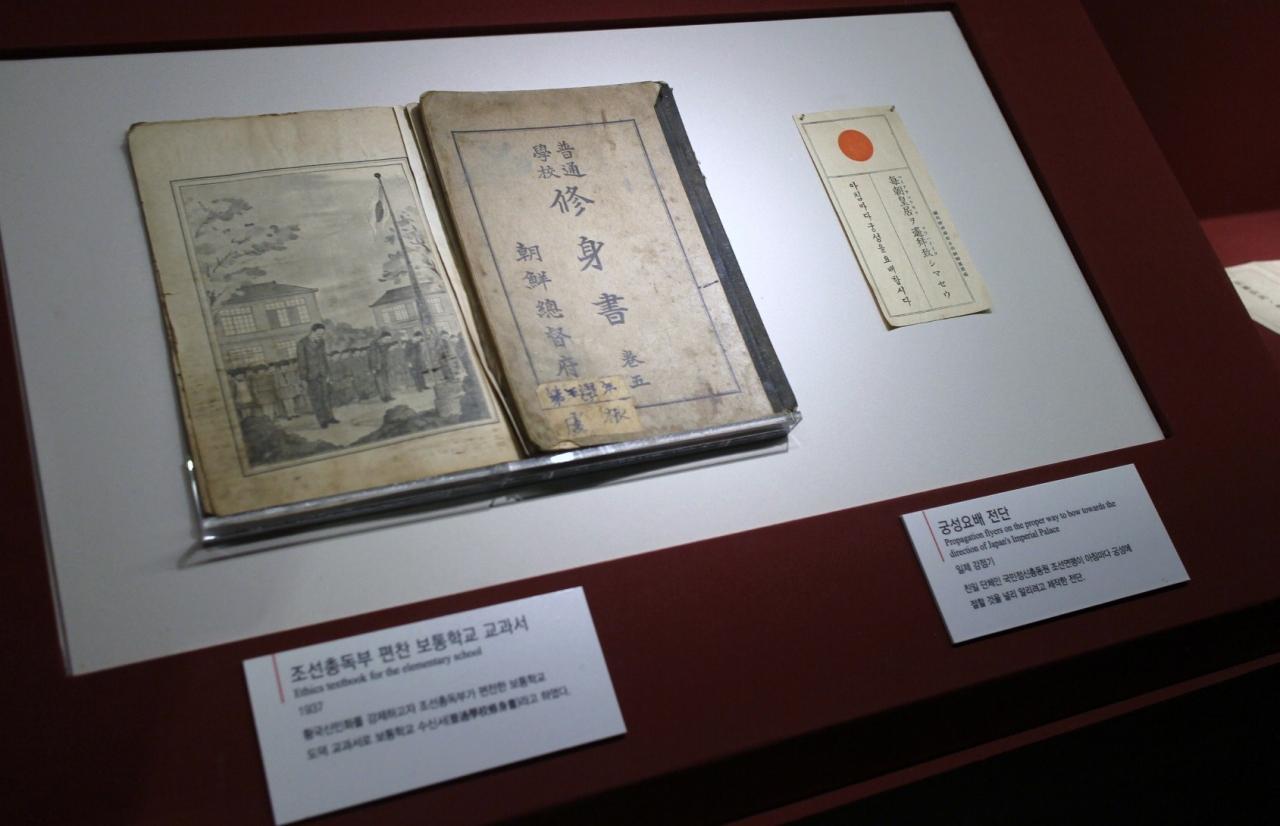 普通
學校
修身書
卷五
朝鮮總督府
每朝皇居ヲ遙拜致シマセウ
아침마다궁성을요배합시다
조선총독부 편찬 보통학교 교과서
Ethics textbook for the elementary school
1937
황국신민화를 강제하고자 조선총독부가 편찬한 보통학교
도덕 교과서로 보통학교 수신서(普通學校修身書)라고 하였다.
궁성요배 전단
Propagation flyers on the proper way to bow towards the
direction of Japan's Imperial Palace
일제 강점기
친일 단체인 국민정신총동원 조선연맹이 아침마다 궁성에
절할 것을 널리 알리려고 제작한 전단.